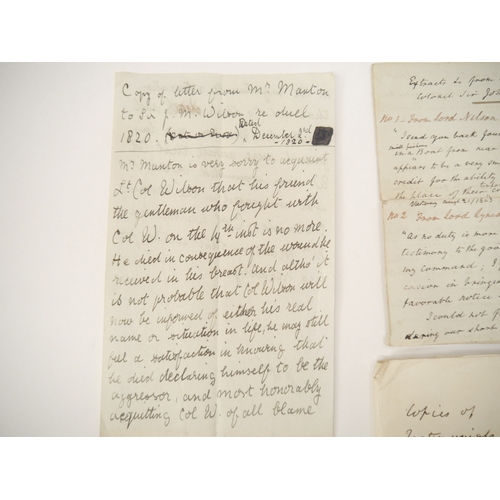 Copy of letter from Mr. Manton
to Sir J. M. Wilson re duel
1820. Dated
"December 2nd
-1820-
Mr Manton is very sorry to acquaint
Lt. Col Wilson that his friend
the gentleman who fought with
Col W. on the 14th inst is no more.
He died in consequence of the wound he
received in his breast. and altho' it
is not probable that Col Wilson will
now be informed of either his real
name or situation in life, he may still
feel a satisfaction in knowing that
he died declaring himself to be the
aggressor, and most honorably
acquitting Col W. of all blame
Extracts from
Colonel Sir John
No 1. From Lord Nelson
"I send you back your
in a Boat from
appears to be a very
credit for the ability
the place of
No 2 From Lord
"As no duty is more
testimony to the
my command; I
reason in bringing
favorable notice
I could not
during our short
Copies of